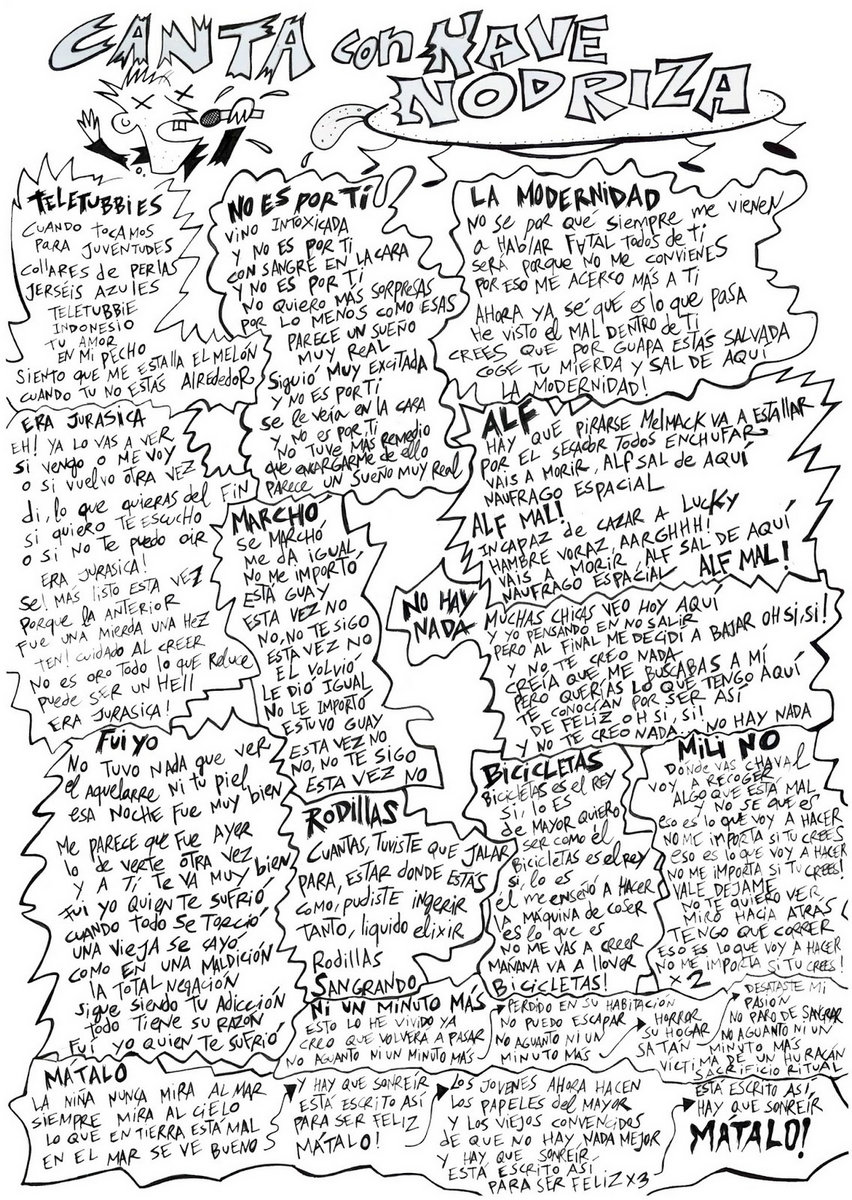 CANTA con NAVE
NODRIZA
TELETUBBIES
CUANDO TOCAMOS
PARA JUVENTUDES
COLLARES de PERLAS
JERSÉIS AZULES
TELETUBBIE
INDONESIO
TU AMOR
EN MI PECHO
SIENTO QUE ME ESTALLA EL MELÓN
CUANDO TU NO ESTÁS ALREDEDOR
NO ES POR TÍ
VINO INTOXICADA
Y NO ES POR TI
CON SANGRE EN LA CARA
Y NO ES POR TÍ
NO QUIERO MÁS SORPRESAS
POR LO MENOS COMO ESAS
PARECE UN SUEÑO
MUY REAL
SIGUIÓ MUY EXCITADA
Y NO ES POR TÍ
SE LE VEÍA EN LA CARA
Y NO ES POR TI
NO TUVE MÁS REMEDIO
QUE ENCARGARME DE ELLO
PARECE UN SUEÑO MUY REAL
LA MODERNIDAD
NO SE POR QUÉ SIEMPRE ME VIENEN
A HABLAR FATAL TODOS DE TI
SERÁ PORQUE NO ME CONVIENES
POR ESO ME ACERCO MÁS A TÍ
AHORA YA SÉ QUE ES LO QUE PASA
HE VISTO EL MAL DENTRO DE TÍ
CREES QUE POR GUAPA ESTÁS SALVADA
COGE TU MIERDA Y SAL DE AQUÍ
LA MODERNIDAD!
ERA JURASICA
EH! YA LO VAS A VER
SI VENGO O ME VOY
O SI VUELVO OTRA VEZ
DI, LO QUE QUIERAS DEL FIN
SI QUIERO TE ESCUCHO
O SI NO TE PUEDO OIR
ERA JURASICA!
SE! MAS LISTO ESTA VEZ
PORQUE LA ANTERIOR
FUE UNA MIERDA UNA HEZ
TEN! CUIDADO AL CREER
NO ES ORO TODO LO QUE RELUCE
PUEDE SER UN HELL
ERA JURASICA!
MARCHÓ
SE MARCHÓ
ME DA IGUAL
NO ME IMPORTÓ
ESTÁ GUAY
ESTA VEZ NO
NO, NO TE SIGO
ESTA VEZ NO
EL VOLVIÓ
LE DIÓ IGUAL
NO LE IMPORTÓ
ESTUVO GUAY
ESTA VEZ NO
NO, NO TE SIGO
ESTA VEZ NO
ALF
HAY QUE PIRARSE MELMACK VA A ESTALLAR
POR EL SECADOR TODOS ENCHUFAR
VAIS A MORIR, ALF SAL DE AQUÍ
NAUFRAGO ESPACIAL
ALF MAL!
INCAPAZ DE CAZAR A LUCKY
HAMBRE VORAZ, AARGHHH!
VAIS A MORIR, ALF SAL DE AQUÍ
NAUFRAGO ESPACIAL ALF MAL!
NO HAY
NADA
MUCHAS CHICAS VEO HOY AQUÍ
Y YO PENSANDO EN NO SALIR
PERO AL FINAL ME DECIDÍ A BAJAR OH SI, SI!
Y NO TE CREO NADA
CREÍA QUE ME BUSCABAS A MÍ
PERO QUERÍAS LO QUE TENGO AQUÍ
TE CONOCÍAN POR SER ASÍ
DE FELIZ OH SI, SI!
Y NO TE CREO NADA NO HAY NADA
FUI YO
NO TUVO NADA QUE VER
EL AQUELARRE NI TU PIEL
ESA NOCHE FUE MUY BIEN
ME PARECE QUE FUE AYER
LO DE VERTE OTRA VEZ
Y A TÍ TE VA MUY BIEN
FUÍ YO QUIEN TE SUFRIÓ
CUANDO TODO SE TORCIÓ
UNA VIEJA SE CAYÓ
COMO EN UNA MALDICIÓN
LA TOTAL NEGACIÓN
SIGUE SIENDO TU ADICCIÓN
TODO TIENE SU RAZÓN
FUÍ YO QUIEN TE SUFRIÓ
RODILLAS
CUANTAS, TUVISTE QUE JALAR
PARA, ESTAR DONDE ESTÁS
COMO, PUDISTE INGERIR
TANTO, LIQUIDO ELIXIR
RODILLAS
SANGRANDO
BICICLETAS
BICICLETAS ES EL REY
SI, LO ES
DE MAYOR QUIERO
SER COMO ÉL
BICICLETAS ES EL REY
SI, LO ES
ÉL ME ENSEÑÓ A HACER
LA MÁQUINA DE COSER
ES LO QUE ES
NO ME VAS A CREER
MAÑANA VA A LLOVER
BICICLETAS!
MILI NO
DONDE VAS CHAVAL
VOY A RECOGER
ALGO QUE ESTÁ MAL
Y NO SE QUE ES
ESO ES LO QUE VOY A HACER
NO ME IMPORTA SI TU CREES
ESO ES LO QUE VOY A HACER
NO ME IMPORTA SI TU CREES!
VALE DEJAME
NO TE QUIERO VER
MIRO HACIA ATRÁS
TENGO QUE CORRER
ESO ES LO QUE VOY A HACER
NO ME IMPORTA SI TU CREES!
x 2
NI UN MINUTO MÁS
ESTO LO HE VIVIDO YA
CREO QUE VOLVERÁ A PASAR
NO AGUANTO NI UN MINUTO MÁS
PERDIDO EN SU HABITACIÓN
NO PUEDO ESCAPAR
NO AGUANTO NI UN
MINUTO MÁS
HORROR
SU HOGAR
SATÁN
VÍCTIMA DE UN HURACÁN
SACRIFICIO RITUAL
DESATASTE MI
PASIÓN
NO PARO DE SANGRAR
NO AGUANTO NI UN
MINUTO MÁS
MATALO
LA NIÑA NUNCA MIRA AL MAR
SIEMPRE MIRA AL CIELO
LO QUE EN TIERRA ESTÁ MAL
EN EL MAR SE VE BUENO
Y HAY QUE SONREÍR
ESTÁ ESCRITO ASÍ
PARA SER FELIZ
MÁTALO!
LOS JOVENES AHORA HACEN
LOS PAPELES DEL MAYOR
Y LOS VIEJOS CONVENCIDOS
DE QUE NO HAY NADA MEJOR
Y HAY QUE SONREÍR
ESTÁ ESCRITO ASÍ
PARA SER FELIZ x3
ESTÁ ESCRITO ASÍ,
HAY QUE SONREÍR
MÁTALO!